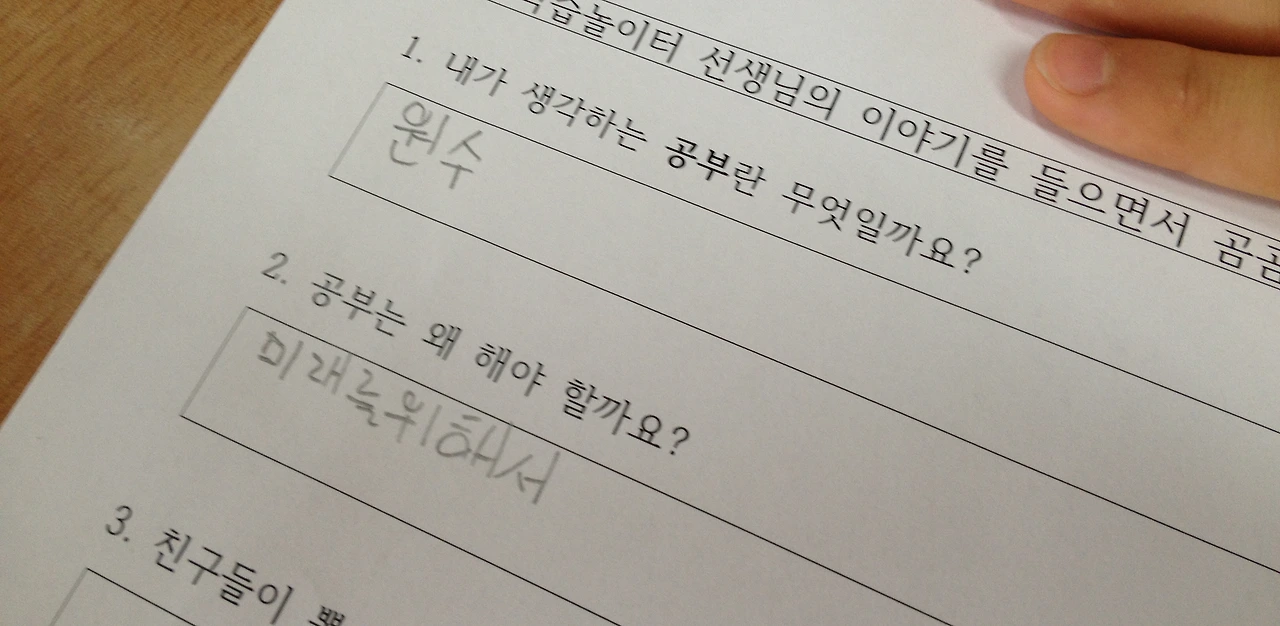 습놀이터 선생님의 이야기를 들으면서 곰곰
1. 내가 생각하는 공부란 무엇일까요?
원수
2. 공부는 왜 해야 할까요?
미래를위해서
3. 친구들이